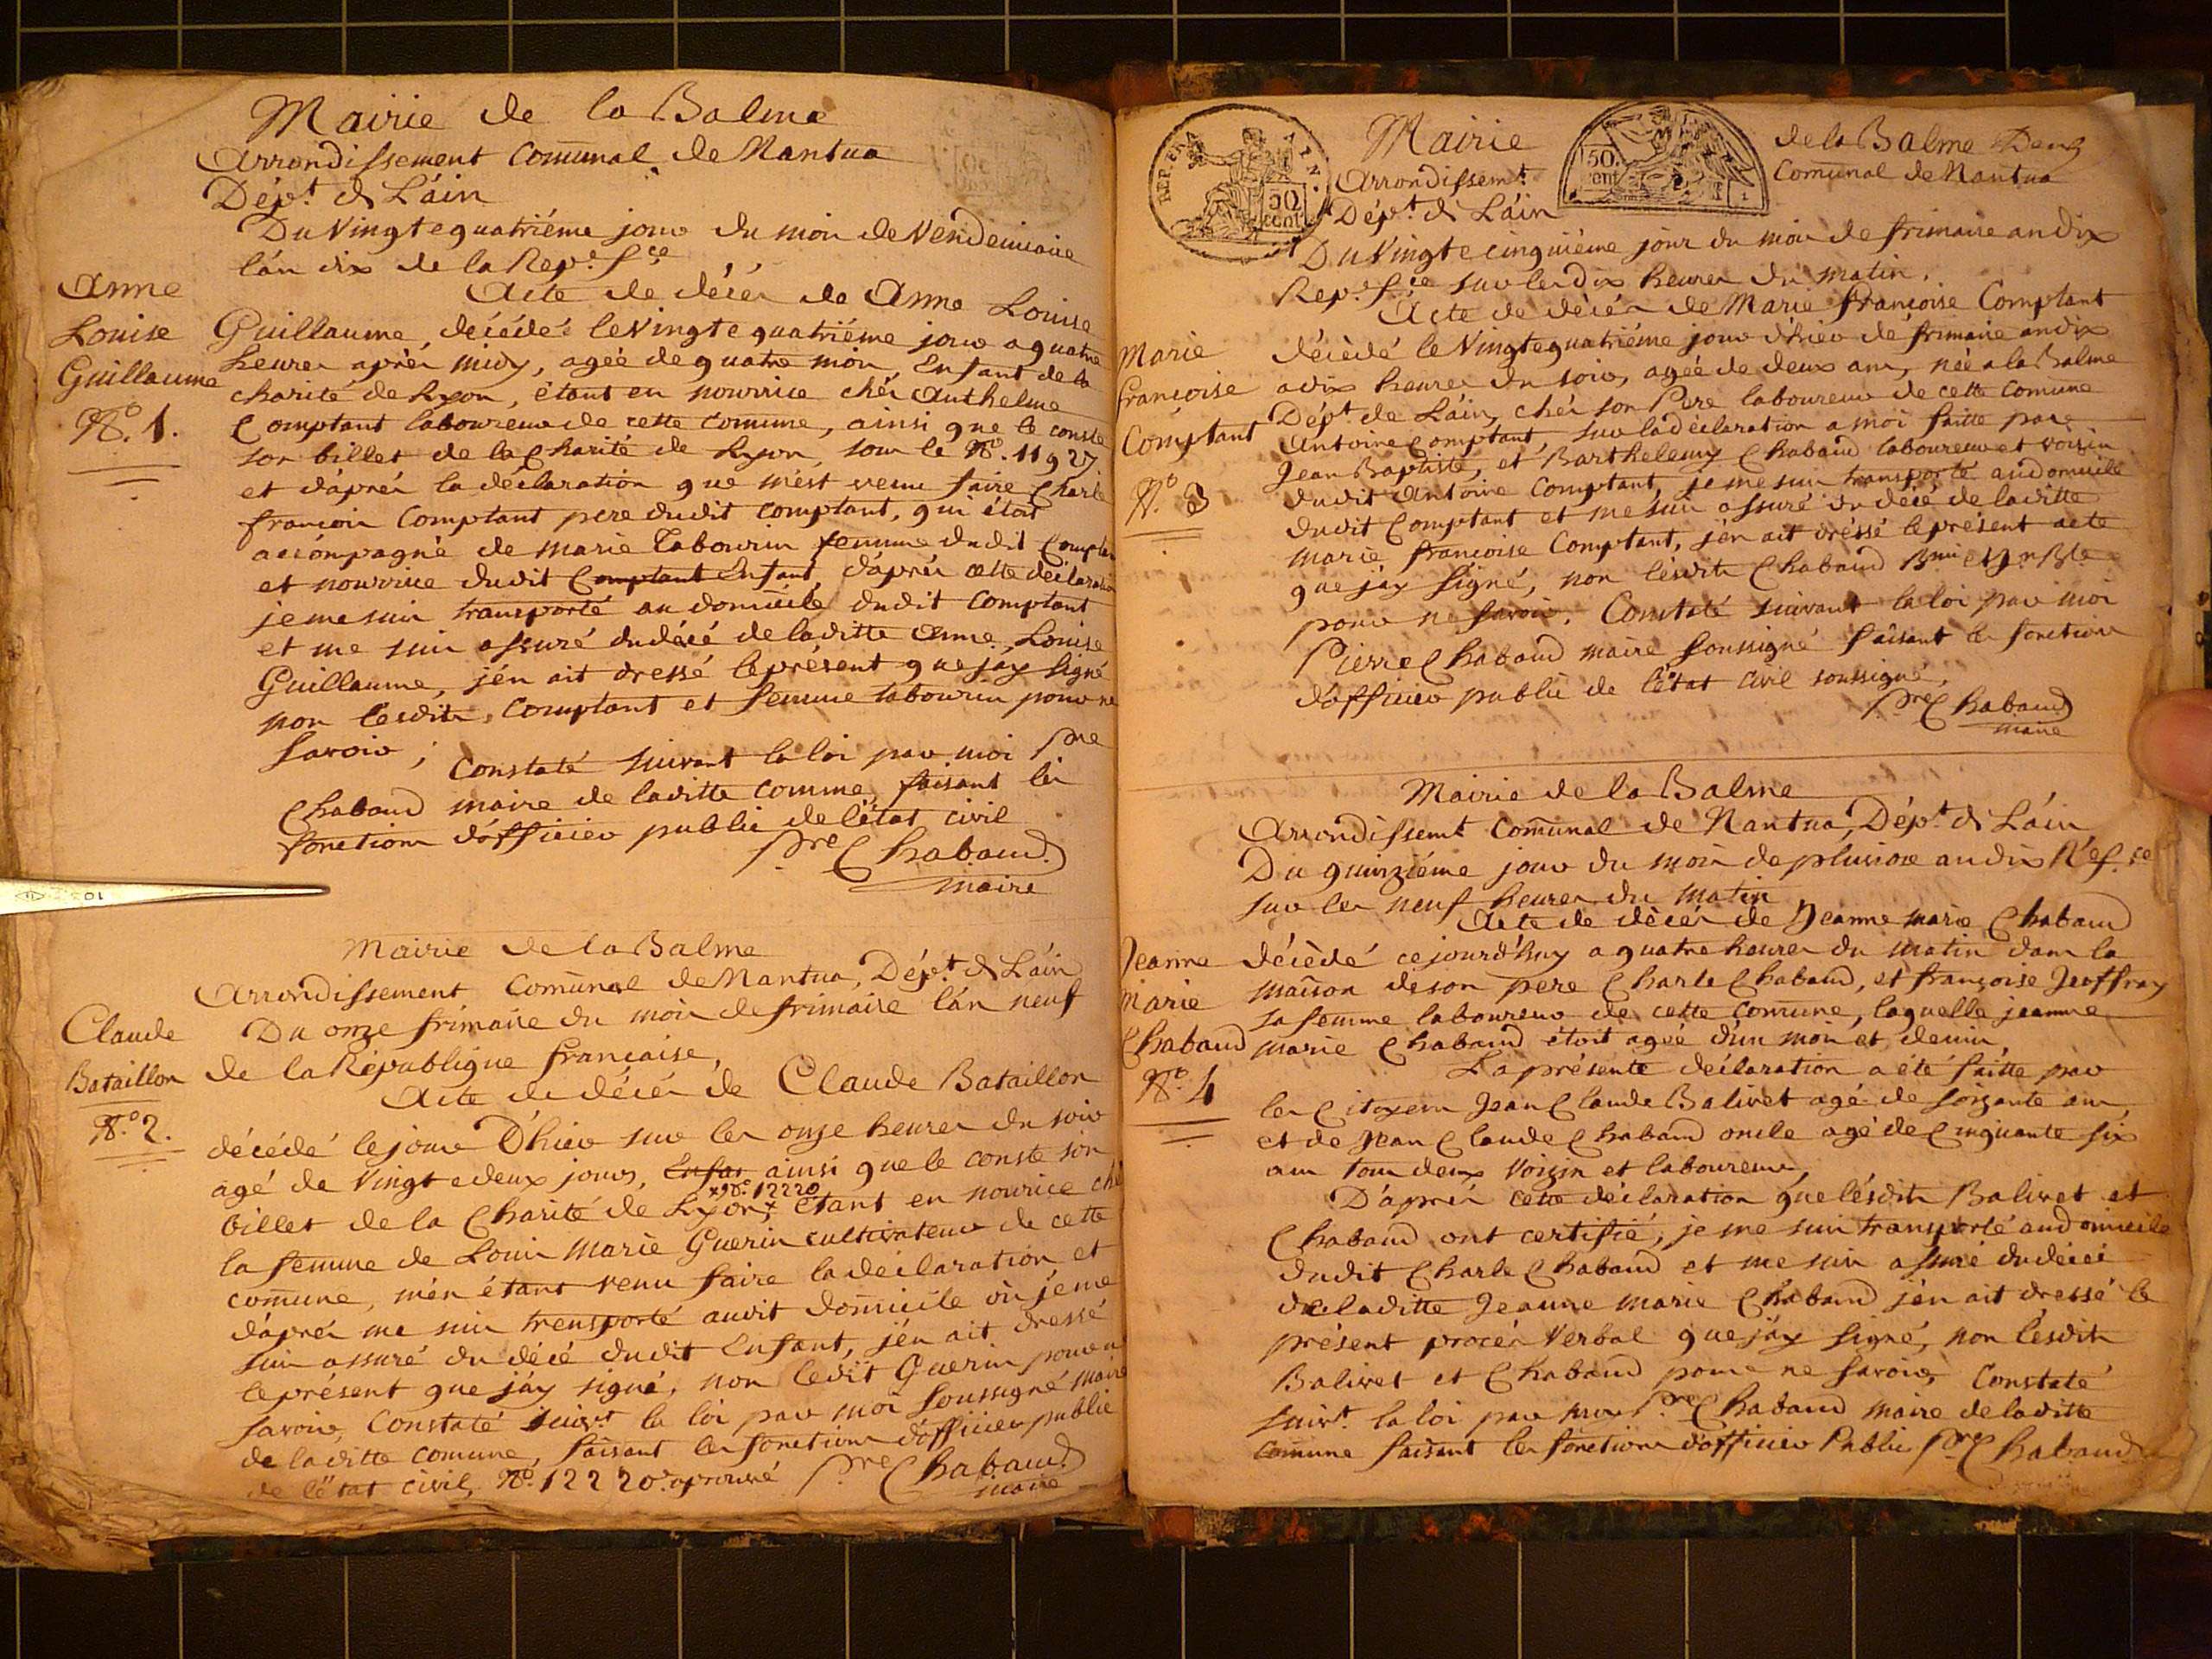 Mairie de la Balme
Arrondissement Comunal de Nantua
Dépt. de L'áin
Du Vingt e quatriéme jour du mois de Vendemiaire
l'án dix de la Repe. fce
Acte de décés de Anne Louise
Anne
Louise
Guillaume
No. 1.
Guillaume, décédée le Vingt e quatriéme jour a quatre
heures aprés midy, agée de quatre mois, Enfant de la
charité de Lyon, étant en nourrice chés Anthelme
Comptant laboureur de cette comune, ainsi que le conste
son billet de la Charité de Lyon, sous le No. 11927
et d'áprés la déclaration que m'est venu faire Charle
françois Comptant pere dudit comptant, qui étoit
accompagné de marie Tabourin femme dudit Comptan
et nourrice dudit Comptant Enfant, d'áprés cette déclaration
je me suis transporté au domicile dudit Comptant
et me suis assuré du décé de laditte Anne Louise
Guillaume, j'én ait dressé le présent que j'ay signé
non lesdits Comptant et femme tabourin pour ne
savoir; Constaté suivant la loi par moi Pre
Chabaud maire de laditte comune, faisant les
fonctions d'officier public de l'état civil
Pre Chabaud
maire
Mairie de la Balme
Arrondissement Comunal de Nantua, Dépt. de L'áin
Du onze frimaire du mois de frimaire l'án neuf
de la République française,
Acte de décés de Claude Bataillon
Claude
Bataillon
No. 2.
décédé le jour D'hier sur les onze heures du soir
agé de Vingt e deux jours, Enfan ainsi que le conste son
x No. 12220
billet de la Charité de Lyon x, étant en nourice ché
la femme de Louis Marie Guerin cultivateur de cette
comune, m'én étant venu faire la déclaration et
d'áprés me suis trensporté audit domicile où je me
suis assuré du décé dudit Enfant, j'én ait dressé
le présent que j'áy signé, non ledit Guerin pour n
savoir, Constaté suivt. la loi par moi soussigné maire
de laditte comune, faisant les fonctions d'officier public
de l'état civil, No. 12220. aprouvé Pre Chabaud
maire
REP. FRA
50
cent
Mairie
50.
cent
de la Balme Deux
Arrondissemt. Comunal de Nantua
Dépt. de L'áin
Du Vingt e cinquiéme jour du mois de frimaire an dix
Repe. fce sur les dix heures du matin.
Acte de décés de Marie françoise Comptant
Marie
françoise
Comptant
No. 3
décèdé le Vingt e quatriéme jour d'hier de frimaire an dix
a dix heures du soir, agée de deux ans, née a la Balme
Dépt. de L'áin, chés son Pere laboureur de cette comune
Antoine Comptant, sur la déclaration a moi faitte par
Jean Baptiste, et Barthelemy Chabaud laboureur et voisin
dudit Antoine Comptant, je me suis transporté au domicile
dudit Comptant et me suis assuré du décé de laditte
marie françoise Comptant, j'én ait dréssé le présent acte
que j'ay signé, non lésdits Chabaud Bmi et Jn Bte
pour ne savoir. Constaté suivant la loi par moi
Pierre Chabaud maire soussigné faisant les fonction
d'officier public de l'état civil soussigné.
Pre Chabaud
maire
Mairie de la Balme
Arrondissemt Comunal de Nantua, Dépt. de L'áin
Du quinziéme jour du mois de pluviose an dix Ref. ce
sur les neuf heures du matin
Acte de décés de Jeanne marie Chabaud
Jeanne
Marie
Chabaud
No. 4
décèdé ce jourd'huy a quatre heures du matin dans la
maison de son pere Charle Chabaud, et françoise Jeoffray
sa femme laboureur de cette comune, laquelle jeanne
marie Chabaud étoit agée d'un mois et demis,
La présente déclaration a été faitte par
les Citoyens Jean Claude Balivet agé de soizante ans,
et de Jean Claude Chabaud oncle agé de Cinquante six
ans tous deux voizin et laboureurs,
D'áprés cette déclaration que lésdits Balivet et
Chabaud ont certifié, je me suis transporté au domicile
dudit Charle Chabaud et me suis assuré du décé
de laditte Jeanne marie Chabaud j'én ait dressé le
présent procés Verbal que j'áy signé, non lésdits
Balivet et Chabaud pour ne savoir, Constaté
suivt. la loi par moy Pre Chabaud maire de laditte
comune faisant les fonctions d'officier Public Pre Chabaud